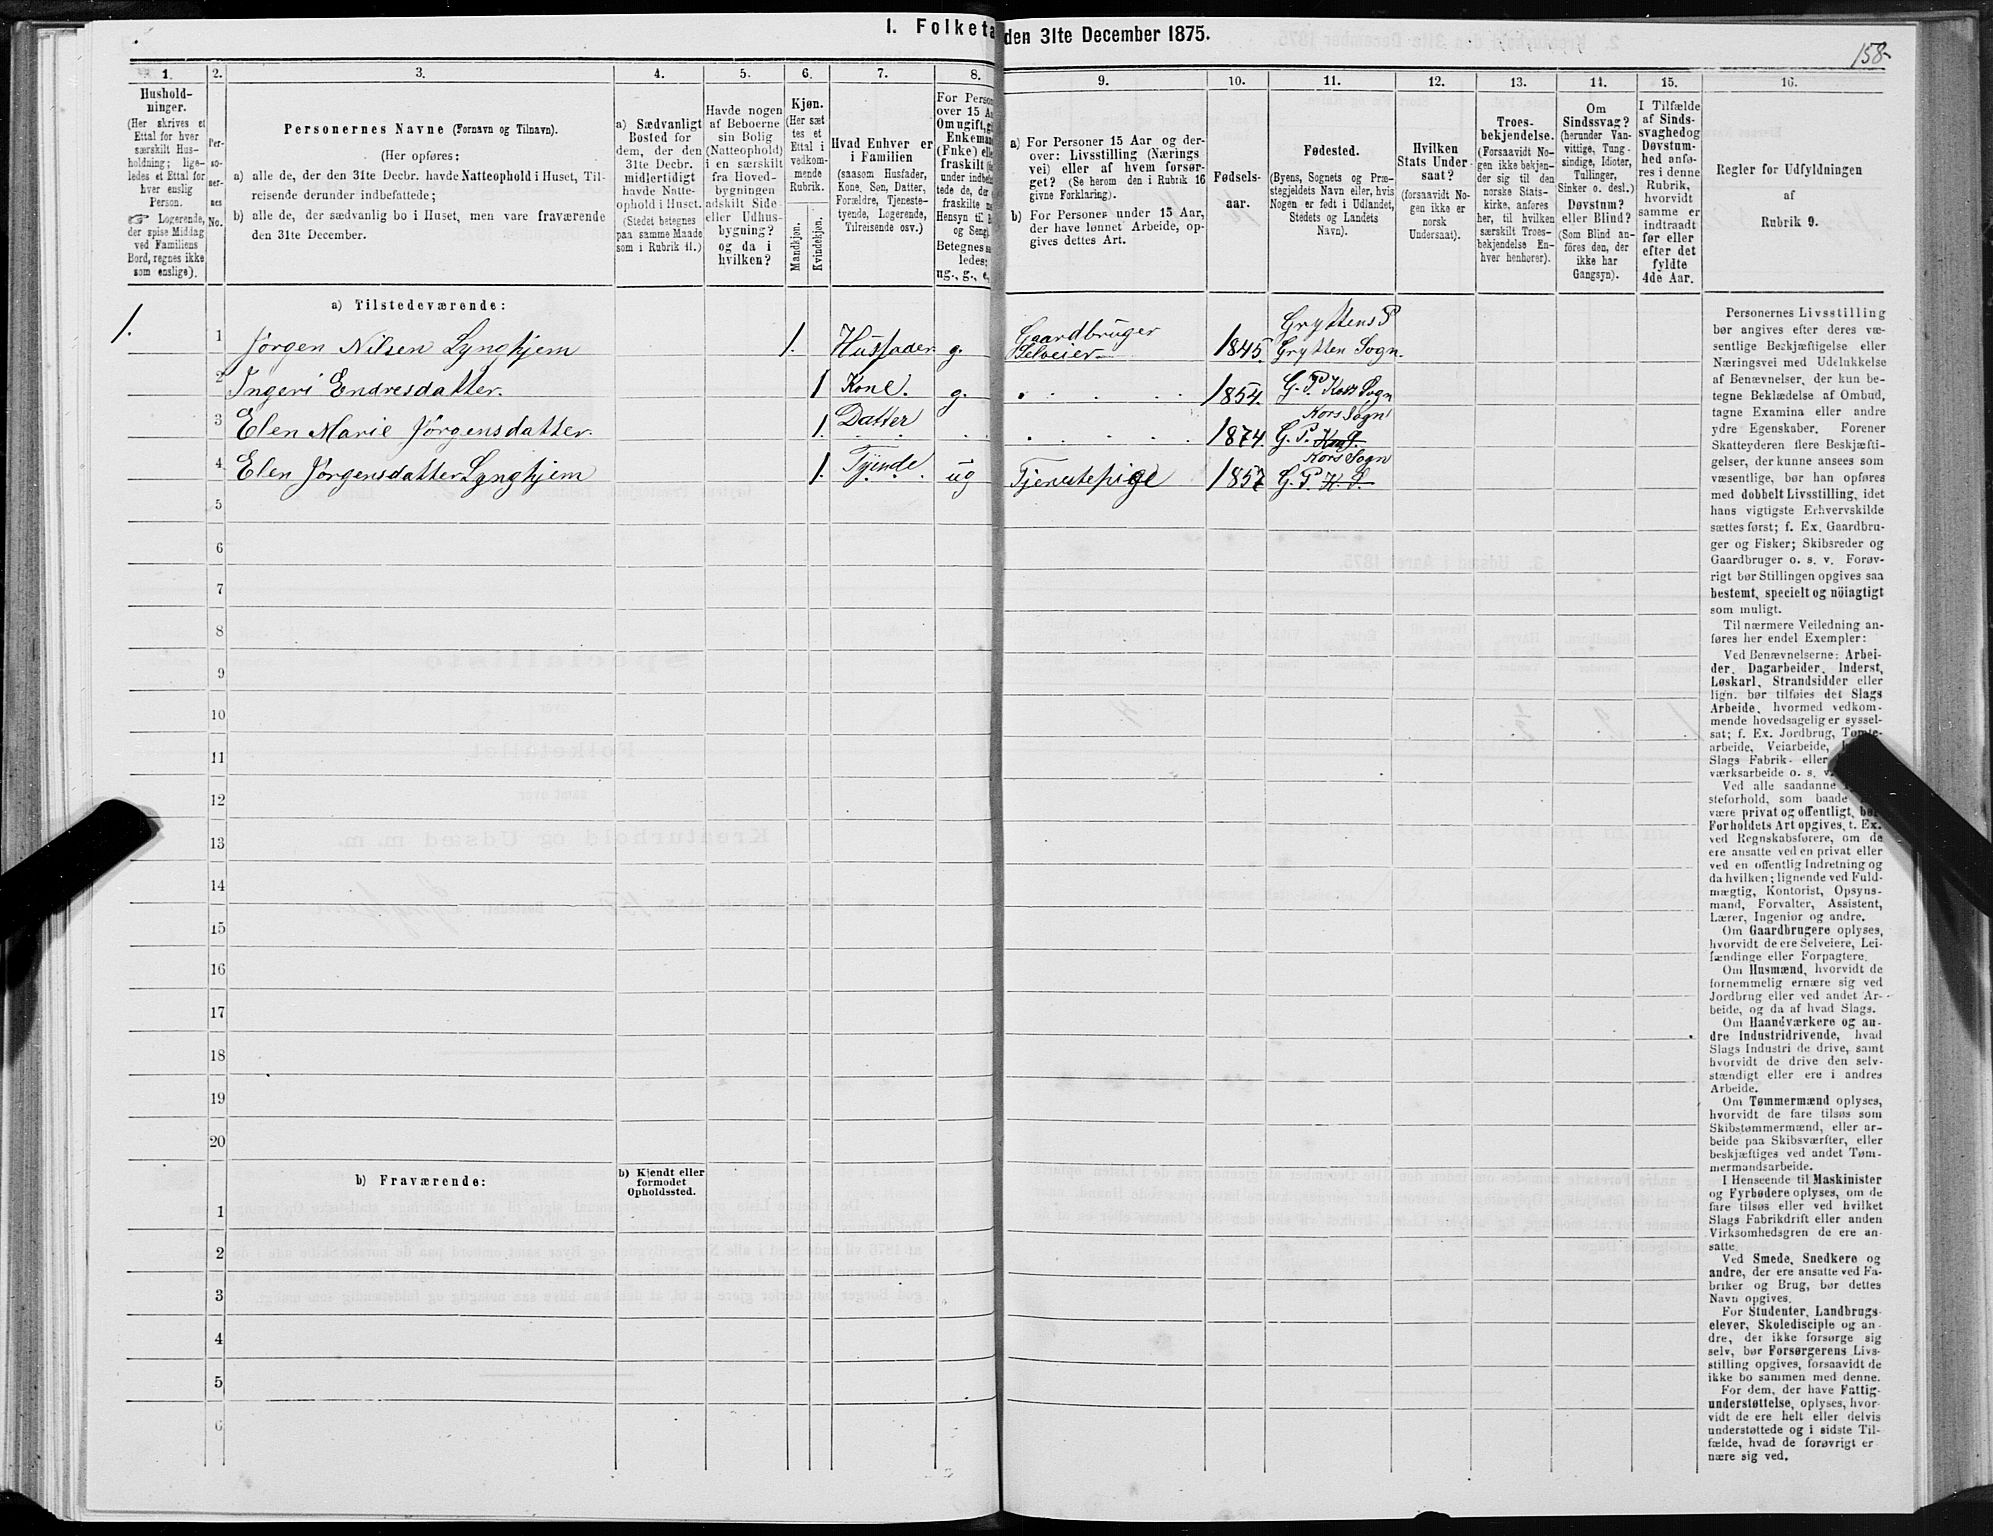 I. Folketa den 31te December 1875.
158
1.
2.
3.
4.
5.
6.
7.
8.
9.
10.
11.
12.
13.
14.
15.
16.
Hushold-
ninger.
(Her skrives et
Ettal for hver
særskilt Hus-
holdning; lige-
ledes et Ettal for
hver enslig
Person.
☞ Logerende,
der spise Middag
ved Familiens
Bord, regnes ikke
som enslige).
Per-
so-
ner-
nes
No.
Personernes Navne (Fornavn og Tilnavn).
(Her opføres:
a) alle de, der den 31te Decbr. havde Natteophold i Huset, Til-
reisende derunder indbefattede;
b) alle de, der sædvanlig bo i Huset, men vare fraværende
den 31te December.
a) Sædvanligt
Bosted for
dem, der den
31te Decbr.
midlertidigt
havde Natte-
ophold i Huset.
(Stedet betegnes
paa samme Maade
som i Rubrik 11.)
Havde nogen
af Beboerne
sin Bolig
(Natteophold)
i en særskilt
fra Hoved-
bygningen
adskilt Side-
eller Udhus-
bygning?
og da i
hvilken?
Kjøn.
(Her sæt
tes et
Ettal i
vedkom-
mende
Rubrik.
Mandkjøn.
Kvindekjøn.
Hvad Enhver er
i Familien
(saasom Husfader,
Kone, Søn, Datter,
Forældre, Tjeneste-
tyende, Logerende,
Tilreisende osv.)
For Person
over 15 Aa
Om ugift, gi
Enkeman
(Fnke) elle
fraskilt
under indbefat
tede de, der
fraskilte
Hensyn til B
og Seng).
Betegnes sa
ledes:
ug., g., e.
a) For Personer 15 Aar og der-
over: Livsstilling (Nærings
vei) eller af hvem forsør-
get? (Se herom den i Rubrik 16
givne Forklaring).
b) For Personer under 15 Aar,
der have lønnet Arbeide, op-
gives dettes Art.
Fødsels-
aar.
Fødested.
(Byens, Sognets og Præ-
stegjeldets Navn eller, hvis
Nogen er født i Udlandet,
Stedets og Landets
Navn).
Hvilken
Stats Under-
saat?
(forsaavidt No-
gen ikke er
norsk
Undersaat).
Troes-
bekjendelse.
(Forsaavidt No-
gen ikke bekjen-
der sig til den
norske Stats-
kirke, anføres
her, til hvilken
særskilt Troes-
bekjendelse En-
hver henhører).
Om
Sindssvag?
(herunder Van-
vittige, Tung-
sindige, Idioter,
Tullinger,
Sinker o. desl.)
Døvstum?
eller Blind?
(Som Blind an-
føres den, der
ikke har
Gangsyn).
I Tilfælde
af Sinds-
svaghedog
Døvstum-
hed anfø-
res i denne
Rubrik,
hvorvidt
samme er
indtraadt
før eller
efter det
fyldte
4de Aar.
Regler for Udfyldningen
af
Rubrik 9.
a) Tilstedeværende:
1. 1 Jørgen Nilsen Lynghjem 1. Husfader g. Gaardbruger Selveier 1845. Gryttens P Grytten Sogn.
2 Ingeri Endresdatter. 1 Kone. g. 1854. G. P. Kors Sogn
3 Elen Marie Jørgensdatter. 1. Datter 1874. G. P. Kors Sogn
4 Elen Jørgensdatter Lynghjem 1. Tyende ug Tjenestepige 1857 G. P. K. S. Kors Sogn
5
6
7
8
9
10
11
12
13
14
15
16
17
18
19
20
b) Fraværende:
b) Kjendt eller
formodet
Opholdssted.
1
2
3
4
5
6
Personernes Livsstilling
bør angives efter deres væ-
sentlige Beskjæftigelse eller
Næringsvei med Udelukkelse
af Benævnelser, der kun be-
tegne Beklædelse af Ombud,
tagne Examina eller andre
ydre Egenskaber. Forener
Skatteyderen flere Beskjæfti-
gelser, der kunne ansees som
væsentlige, bør han opføres
med dobbelt Livsstilling, idet
hans vigtigste Erhvervskilde
sættes først; f. Ex. Gaardbru-
ger og Fisker; Skibsreder og
Gaardbruger o. s. v. Forøv-
rigt bør Stillingen opgives saa
bestemt, specielt og nöiagtigt
som muligt.
Til nærmere Veiledning an-
føres her endel Exempler:
Ved Benævnelserne: Arbei-
der, Dagarbeider, Inderst,
Løskarl, Strandsidder eller
lign. bør tilføies det Slags
Arbeide, hvormed vedkom-
mende hovedsagelig er syssel-
sat; f. Ex. Jordbrug, Tømte-
arbeide, Veiarbeide,
Slags Fabrik- eller
værksarbeide o. s. v.
Ved alle saadanne
steforhold, som baade
være privat og offentligt, bør
Forholdets Art opgives, t. Ex.
ved Regnskabsførere, om de
ere ansatte ved en privat eller
ved en offentlig Indretning og
da hvilken; lignende ved Fuld-
mægtig, Kontorist, Opsyns-
mand, Forvalter, Assistent,
Lærer, Ingeniør og andre.
Om Gaardbrugere oplyses,
hvorvidt de ere Selveiere, Lei-
fændinge eller Forpagtere.
Om Husmænd, hvorvidt de
fornemmelig ernære sig ved
Jordbrug eller ved andet Ar-
beide, og da af hvad Slags.
Om Haandværkere og an-
dre Industridrivende, hvad
Slags Industri de drive, samt
hvorvidt de drive den selv-
stændigt eller ere i andres
Arbeide.
Om Tømmermænd oplyses,
hvorvidt de fare tilsøs som
Skibstømmermænd, eller ar-
beide paa Skibsværfter, eller
beskjæftiges ved andet Tøm-
mermandsarbeide.
I Henseende til Maskinister
og Fyrbødere oplyses, om de
fare tilsøs eller ved hvilket
Slags Fabrikdrift eller anden
Virksomhedsgren de ere an-
satte.
Ved Smede, Snedkere og
andre, der ere ansatte ved Fa-
briker og Brug, bør dettes
Navn opgives.
For Studenter, Landbrugs-
elever, Skoledisciple og an-
dre, der ikke forsørge sig
selv, bør Forsørgerens Livs-
stilling opgives, forsaavidt de
ikke bo sammen med denne.
For dem, der have Fattig-
understøttelse, oplyses, hvor-
vidt de ere helt eller delvis
understøttede og i sidste Til-
fælde, hvad de forøvrigt er
nære sig ved.